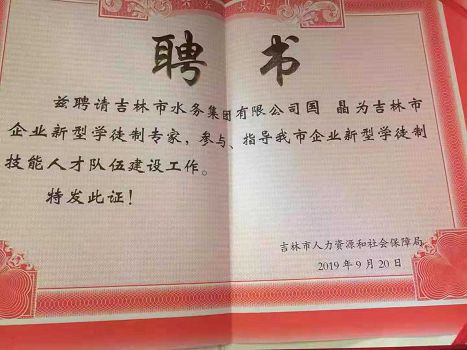 聘书
兹聘请吉林市水务集团有限公司国 晶为吉林市
企业新型学徒制专家，参与、指导我市企业新型学徒制
技能人才队伍建设工作。
特发此证！
吉林市人力资源和社会保障局
2019年9月20日